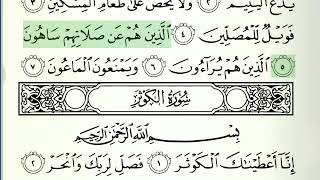 يَدُعُّ ٱلْيَتِيمَ ٢ وَلَا يَحُضُّ عَلَىٰ طَعَامِ ٱلْمِسْكِينِ ٣
فَوَيْلٌ لِّلْمُصَلِّينَ ٤ ٱلَّذِينَ هُمْ عَن صَلَاتِهِمْ سَاهُونَ
٥ ٱلَّذِينَ هُمْ يُرَآءُونَ ٦ وَيَمْنَعُونَ ٱلْمَاعُونَ ٧
سُورَةُ الْكَوْثَرِ
بِسْمِ ٱللَّهِ ٱلرَّحْمَٰنِ ٱلرَّحِيمِ
إِنَّآ أَعْطَيْنَٰكَ ٱلْكَوْثَرَ ١ فَصَلِّ لِرَبِّكَ وَٱنْحَرْ ٢